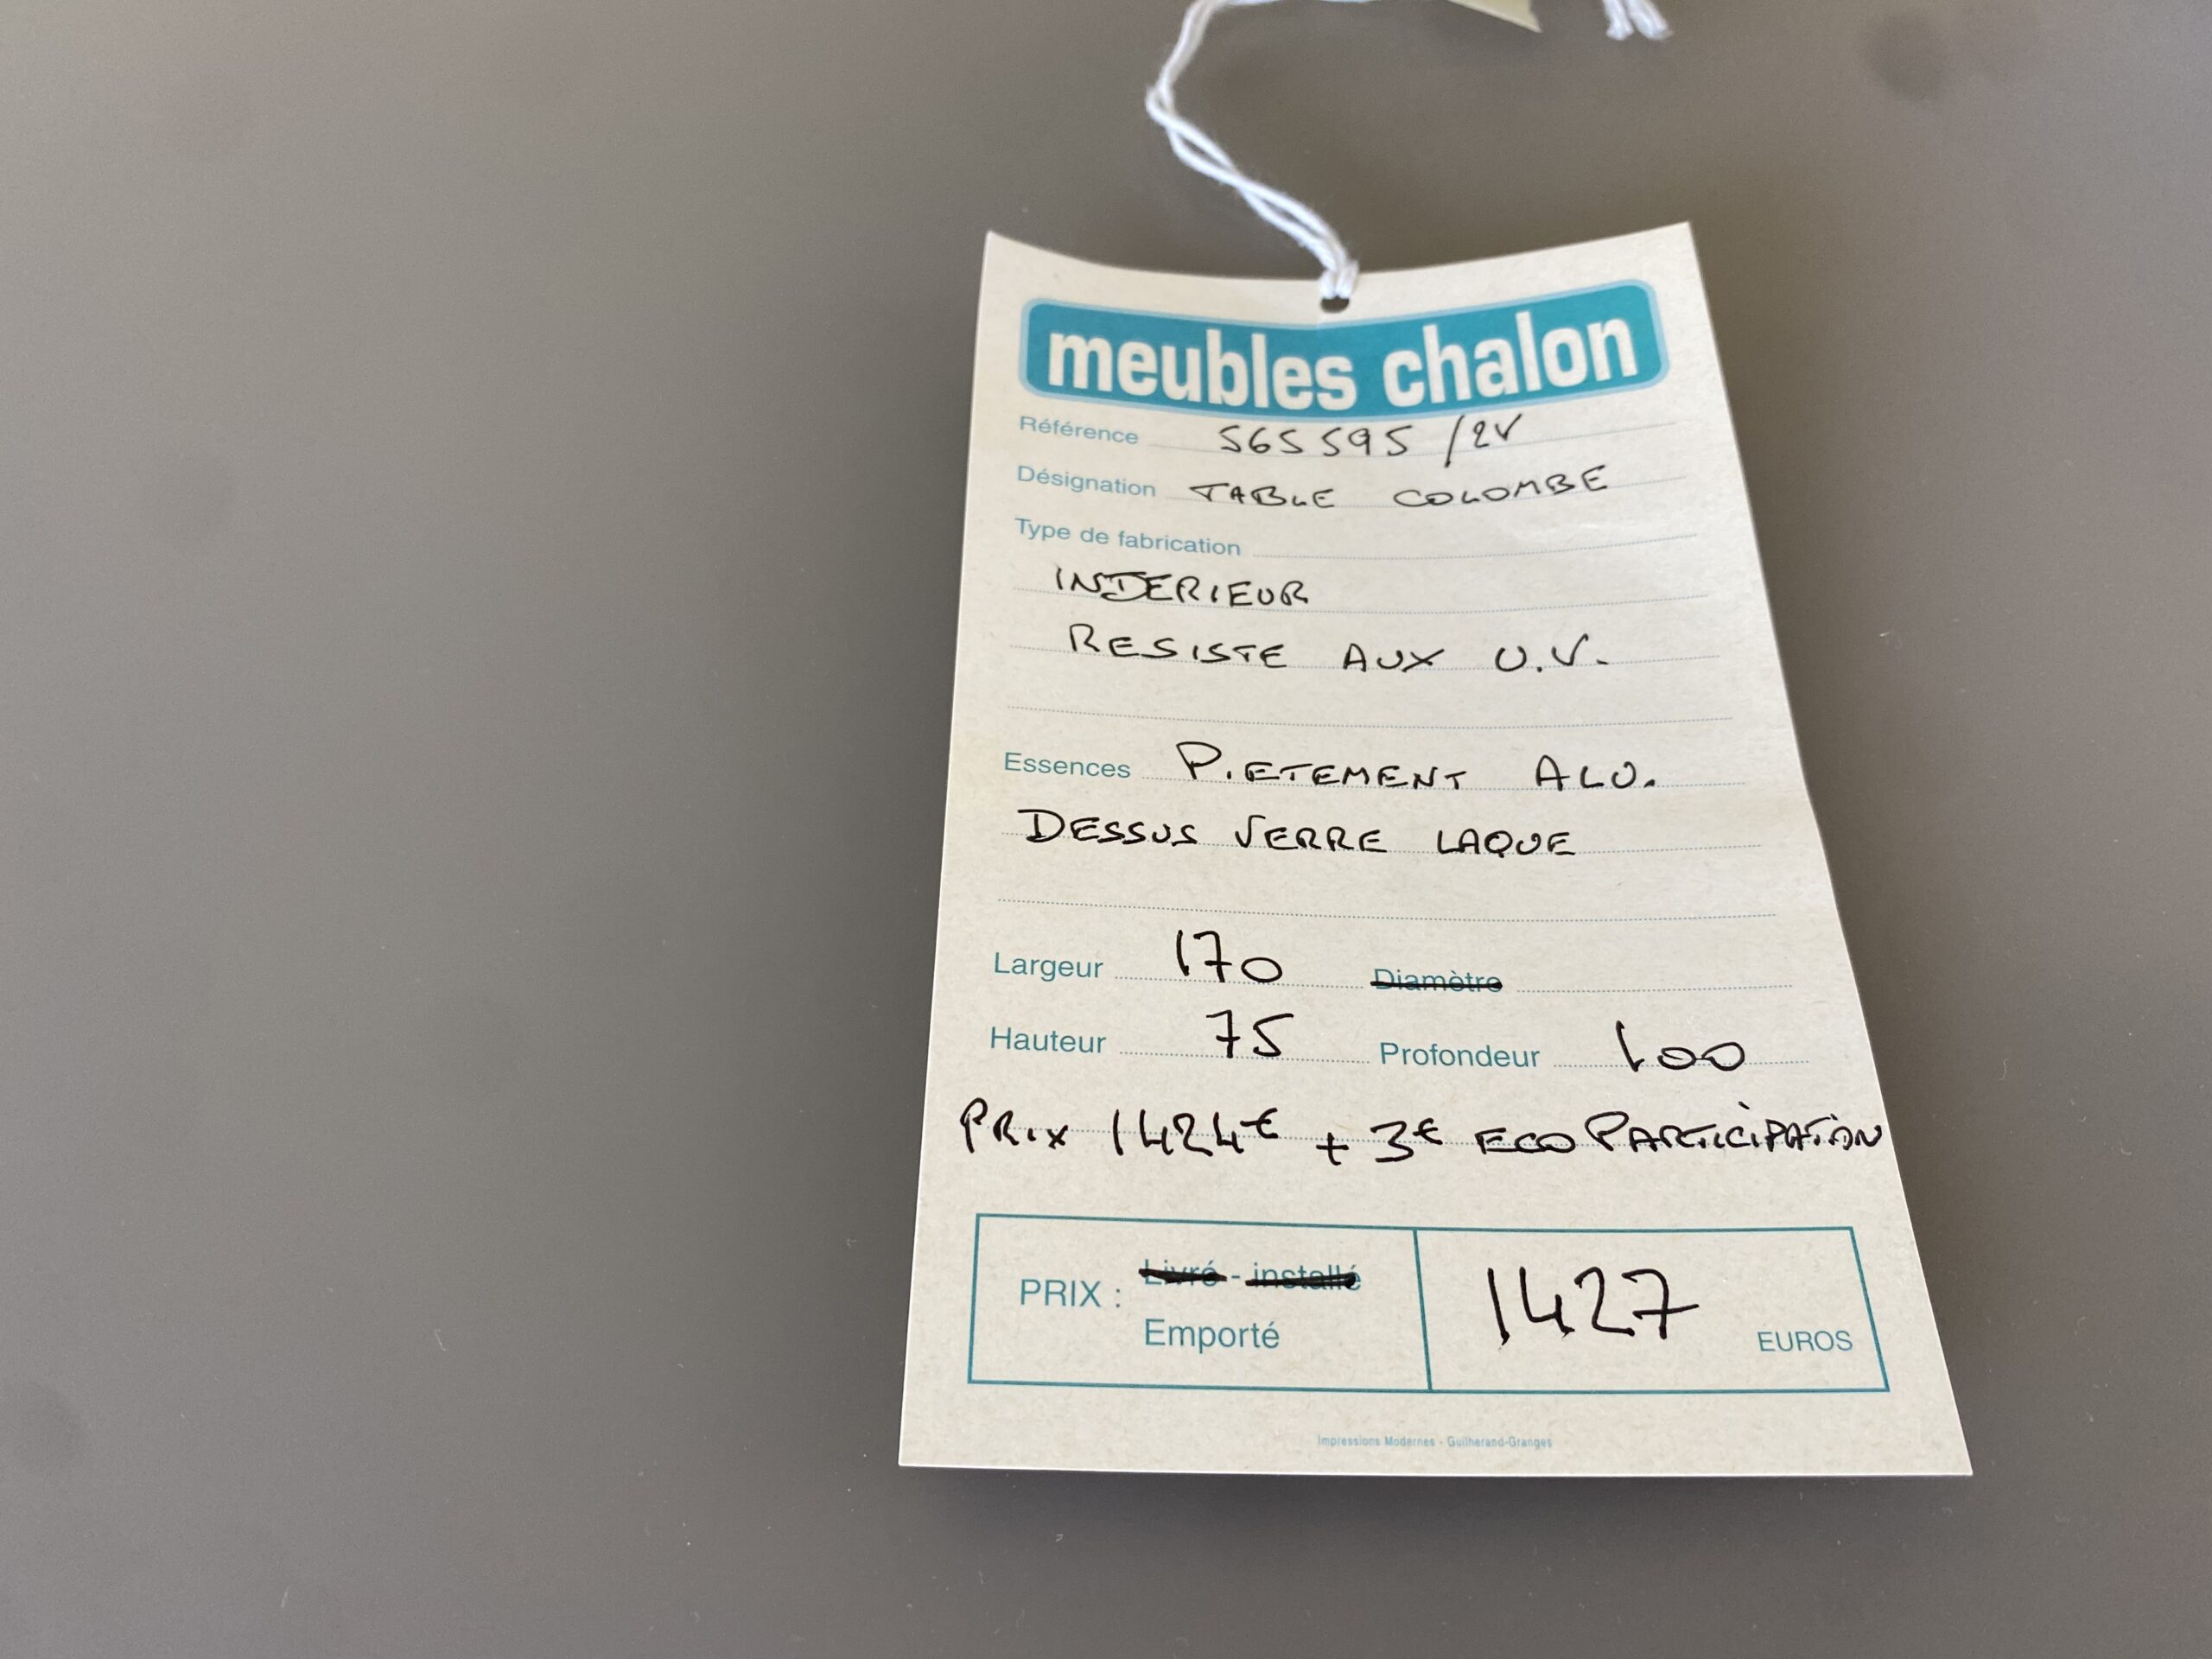 meubles chalon
Référence 565595 /2V
Désignation TABLE COLOMBE
Type de fabrication
INTERIEUR
RESISTE AUX U.V.
Essences PIETEMENT ALU.
DESSUS VERRE LAQUE
Largeur 170 Diamètre
Hauteur 75 Profondeur 100
PRIX 1424€ + 3€ ECO PARTICIPATION
PRIX : Livré - installé
Emporté
1427 EUROS
Impressions Modernes - Guilherand-Granges